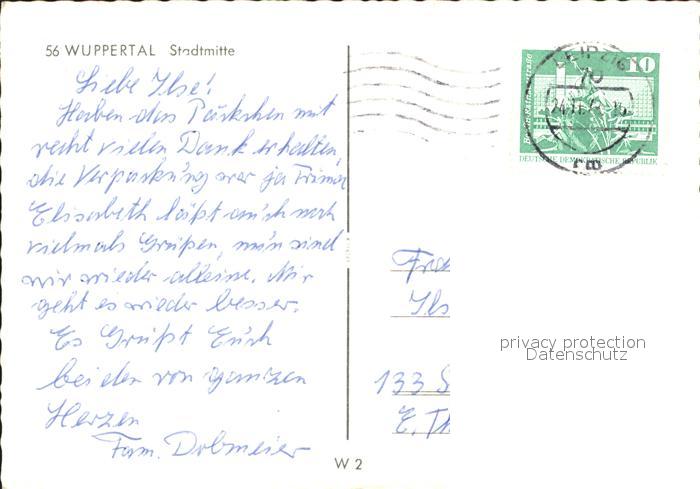 56 WUPPERTAL Stadtmitte
Liebe Ilse!
Haben das Päckchen mit
recht vielen Dank erhalten,
die Verpackung war ja Prima
Elisabeth läßt auch noch
vielmals Grüßen, nun sind
wir wieder alleine. Mir
geht es wieder besser.
Es Grüßt Euch
beiden von ganzen
Herzen
Fam. Dobmeier
W 2
LEIPZIG
70
10
DEUTSCHE DEMOKRATISCHE REPUBLIK
Fra
Ils
133 S
E. Th
privacy protection
Datenschutz